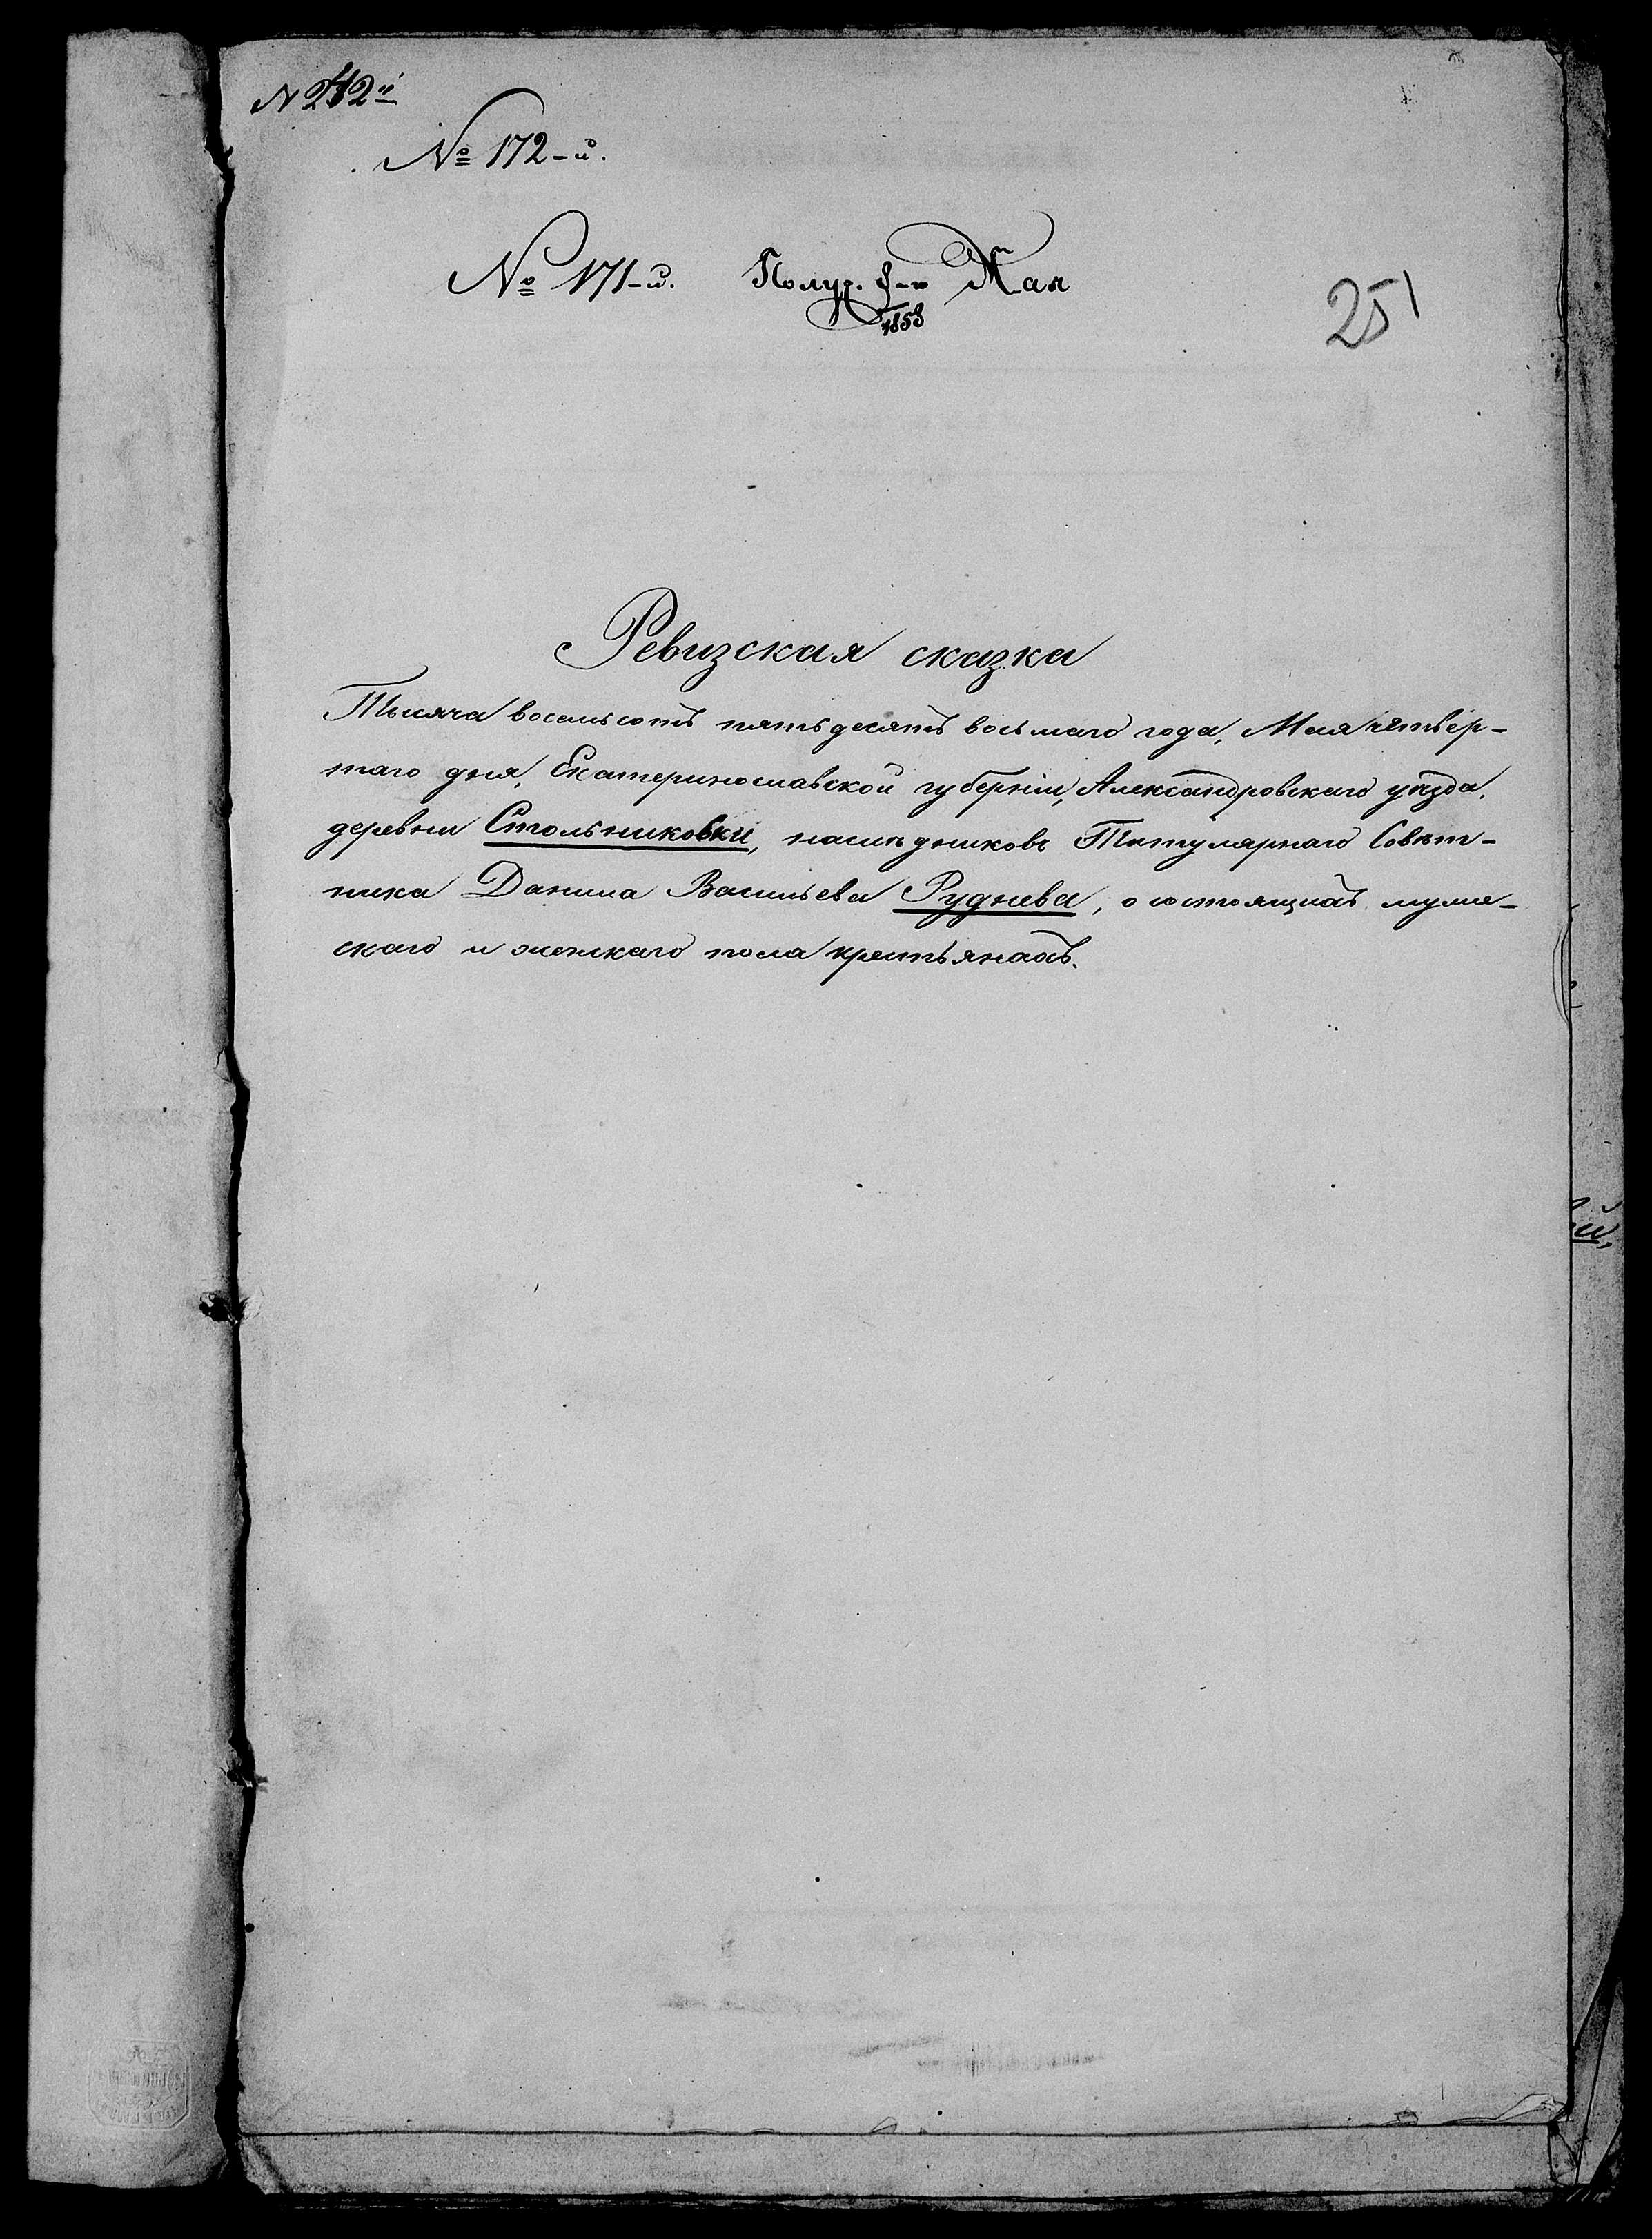 № 172-й.
№ 171-й. Получ. 8-го Мая
1858
251
Ревизская сказка
Тысяча восемьсотъ пятьдесятъ восьмаго года, Мая четвер-
таго дня, Екатеринославской губерніи, Александровскаго уѣзда,
деревни Стольниковки, наслѣдниковъ Титулярнаго Совѣт-
ника Данила Васильева Руднева, о состоящихъ муже-
скаго и женскаго пола крестьянахъ.